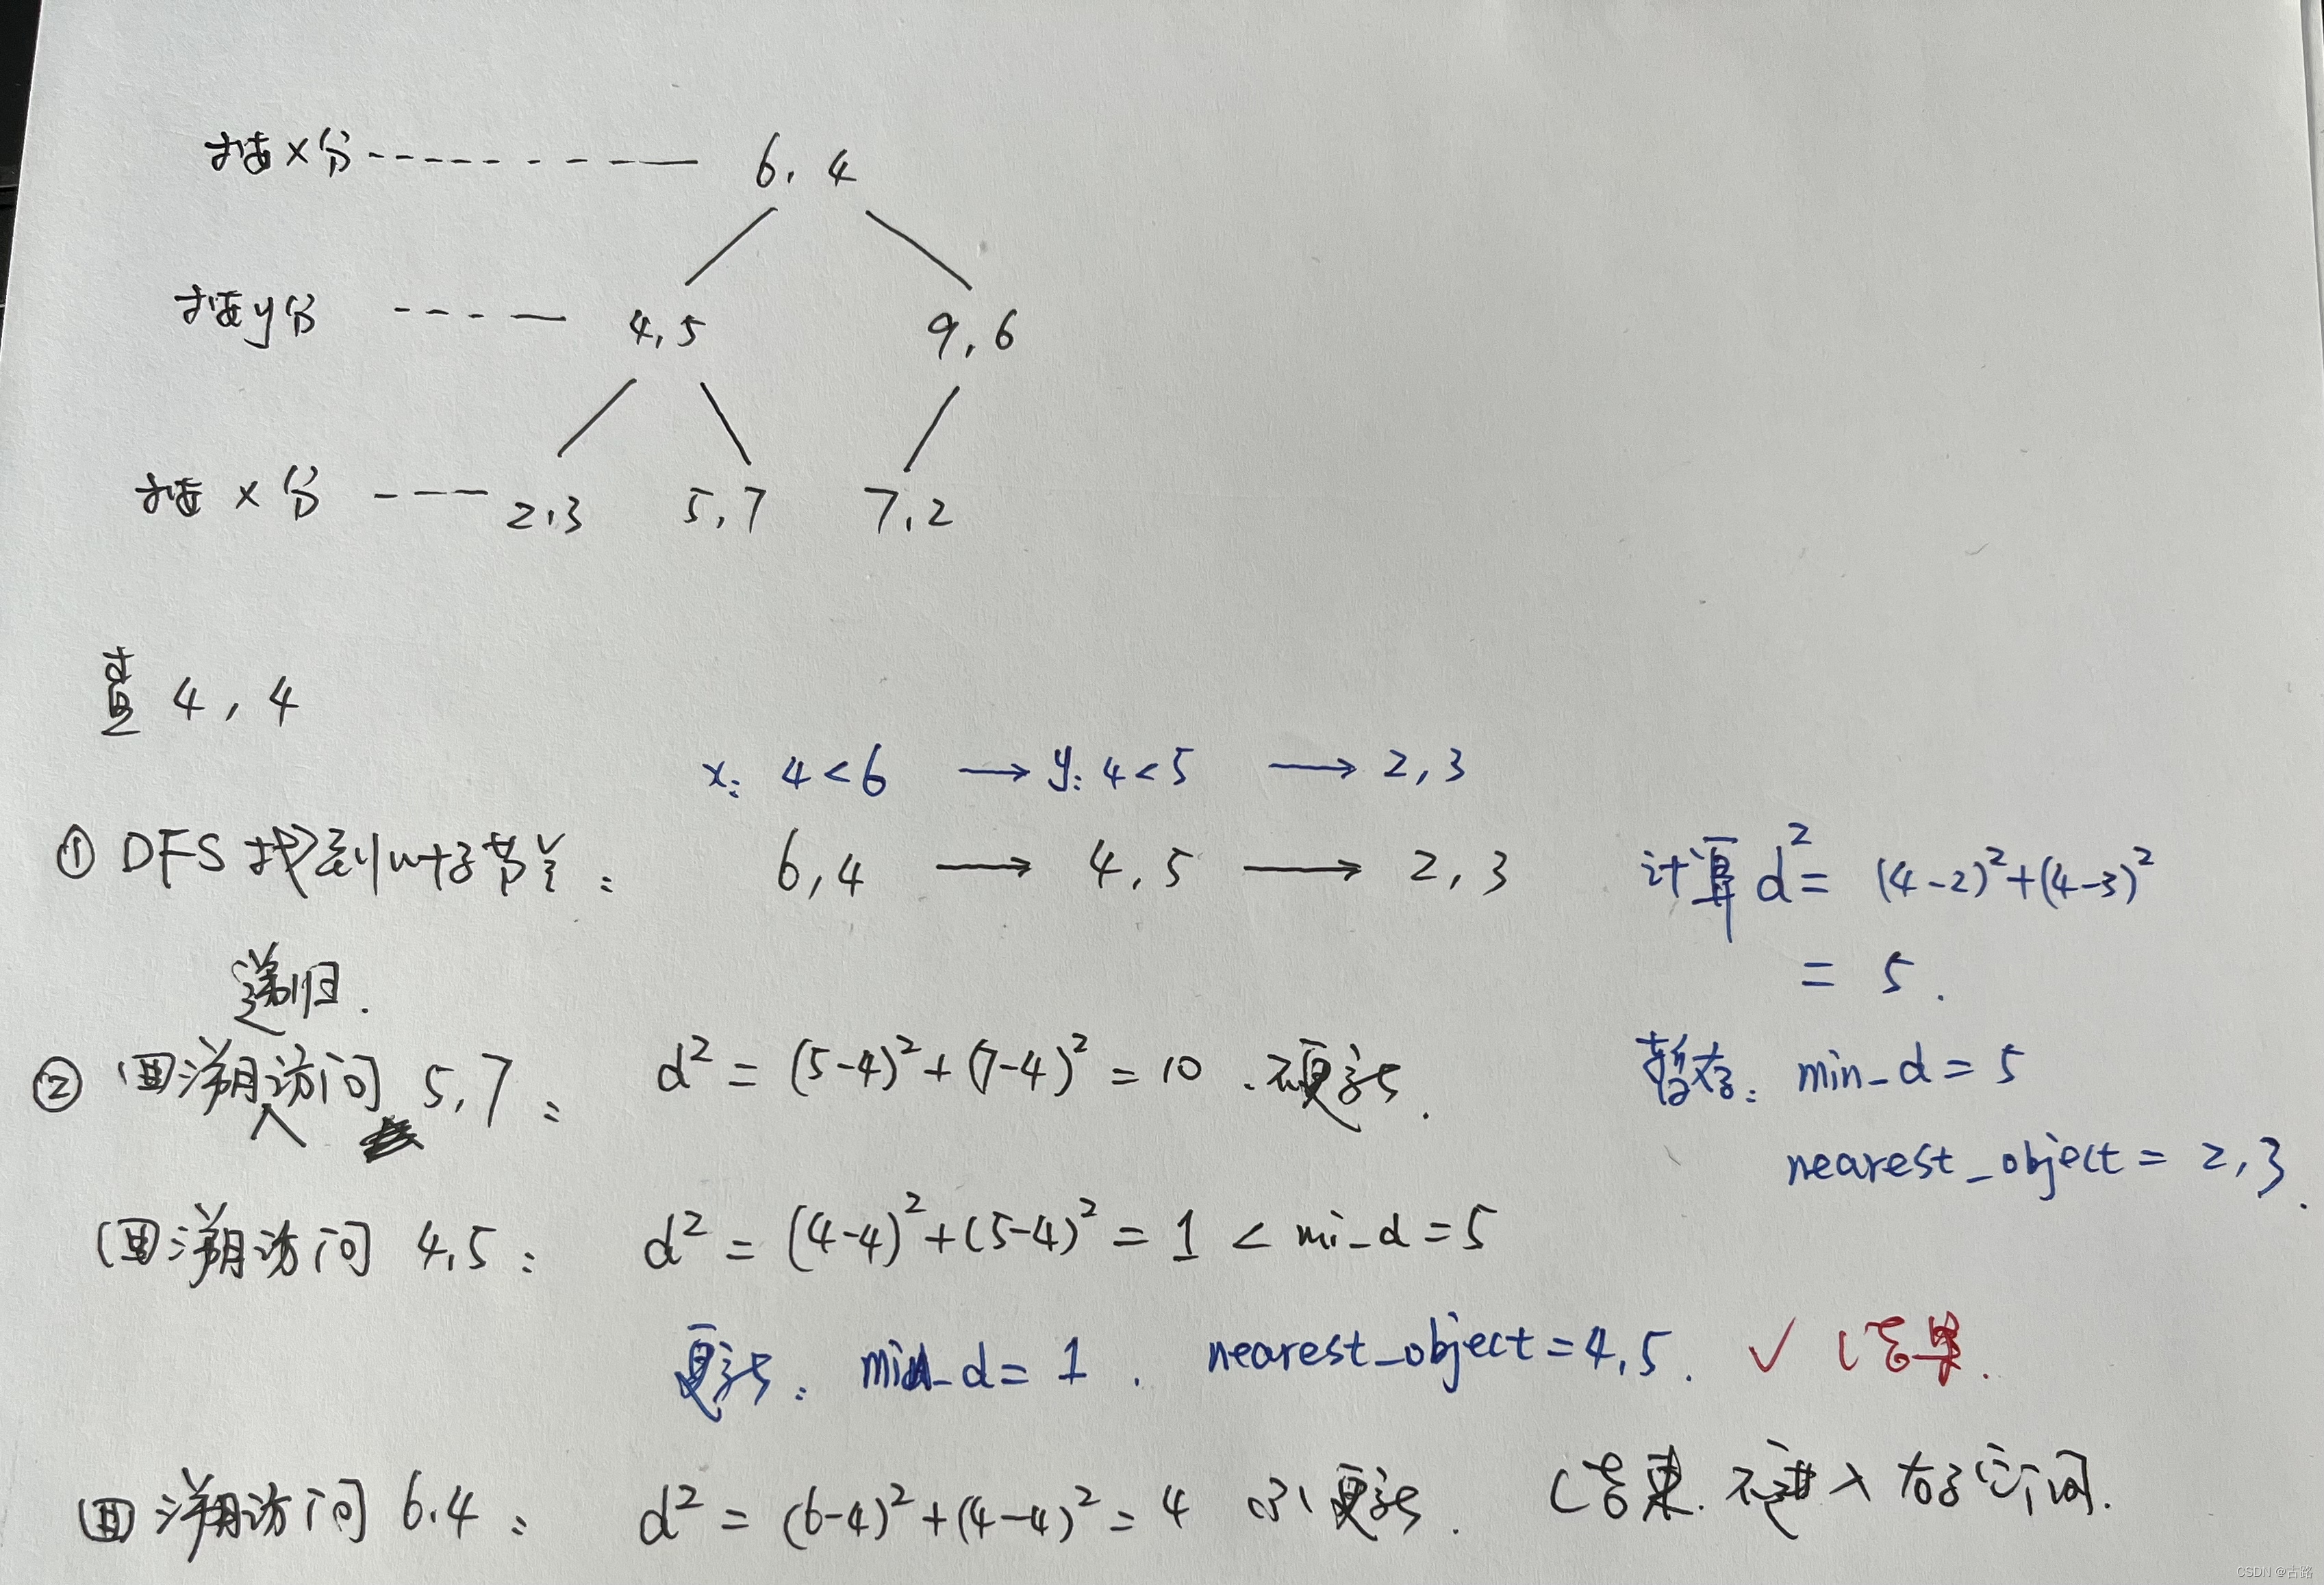 按x分 6, 4
按y分 4,5 9,6
按x分 2,3 5,7 7,2
查 4,4
x: 4<6 → y: 4<5 → 2,3
① DFS 找到叶子节点: 6,4 → 4,5 → 2,3 计算 d²= (4-2)²+(4-3)²
= 5.
递归.
② 回溯访问 5,7: d² = (5-4)²+(7-4)² = 10. 不更新.
暂存: min_d = 5
nearest_object = 2,3.
回溯访问 4,5: d² = (4-4)²+(5-4)² = 1 < mi_d = 5
更新: min_d = 1. nearest_object = 4,5. ✓ 结果.
回溯访问 6.4: d² = (6-4)²+(4-4)² = 4 不更新. 结束. 不进入右子访问.
CSDN @古路